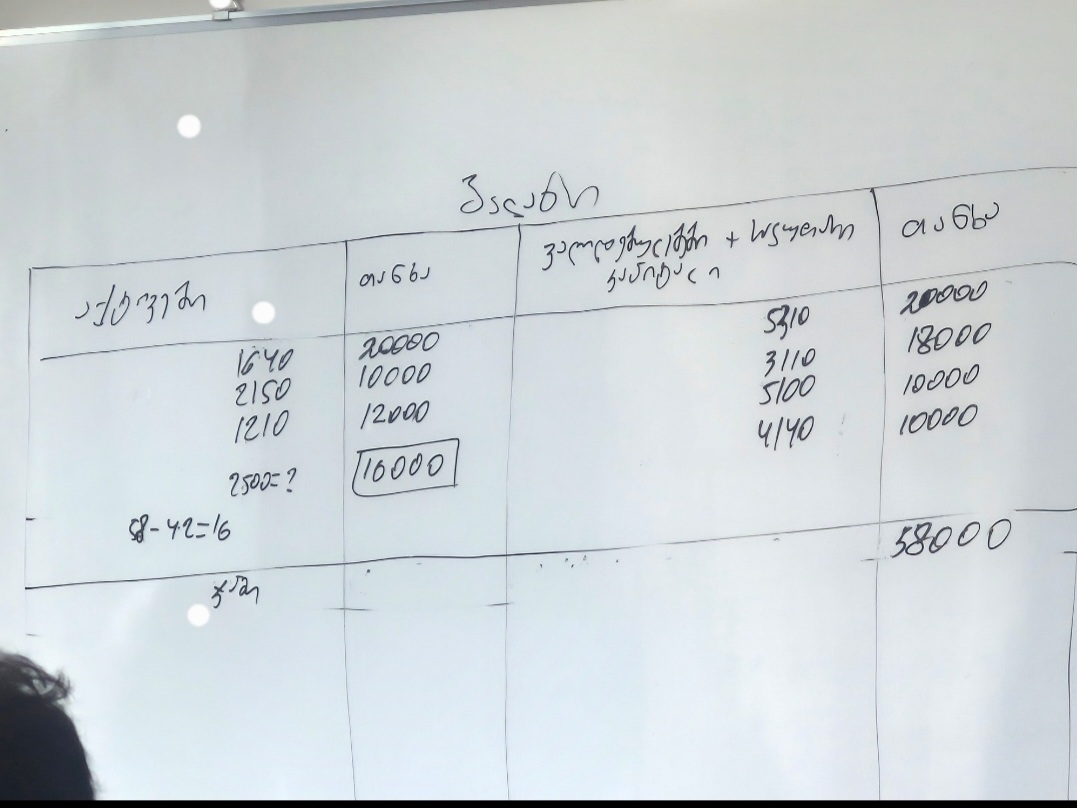 ბალანსი
აქტივები თანხა ვალდებულებები + საკუთარი კაპიტალი თანხა
1640 20000 5310 20000
2150 10000 3110 18000
1210 12000 5100 10000
2500=? 16000 4140 10000
58-42=16 58000
ჯამი